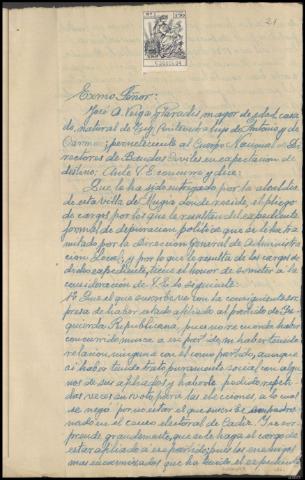 21
Exmo Señor:
José A. Veiga Paradís, mayor de edad, casa-
do, natural de Tuy, Pontevedra hijo de Antonio y de
Carmen; perteneciente al Cuerpo Nacional de Di-
rectores de Bandas Civiles en expectación de
destino; Ante V.E. concurro y dice:
Que le ha sido entregado por la alcaldia
de esta villa de Mugia donde reside, el pliego
de cargos por los que le resultan del expediente
formal de depuración politica que se le ha tra-
mitado por la Dirección General de Administra-
ción Local; y por lo que le resulta de los cargos de
dicho expediente, tiene el honor de someter a la
consideración de V.E. lo siguiente:
1º Que el que suscribe vé con la consiguiente sor-
presa de haber estado afiliado al partido de Iz-
quierda Republicana, pues no recuerda haber
concurrido nunca a mi por de, ni haber tenido
relación ninguna con el como partido, aunque
si haber tenido trato puramente social con algu-
nos de sus afiliados y haberle pedido repeti-
das veces su voto para las elecciones, a lo que
se negó por no estar el que suscribe empadro-
nado en el censo electoral de Cadiz. Pues sor-
prende grandemente, que se le haga el cargo de
estar afiliado a ese partido; pues los enemigos
mas encarnizados que ha tenido el expediente